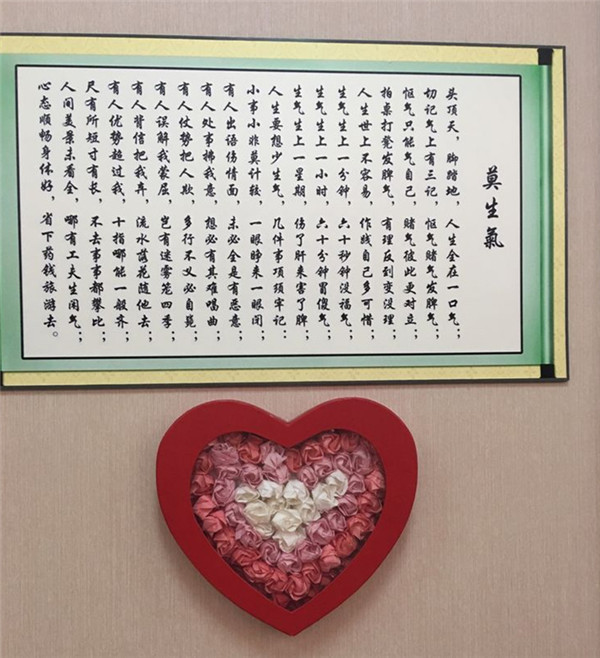 莫生氣
头顶天，脚踏地，人生全在一口气；
切记气上有三记，怄气赌气发脾气；
怄气只能气自己，赌气彼此更对立；
拍桌打凳发脾气，有理反到变没理；
人生世上不容易，作践自己多可惜；
生气生上一分钟，六十秒钟没福气；
生气生上一小时，六十分钟冒傻气；
生气生上一星期，伤了肝来害了脾；
人生要想少生气，几件事项须牢记：
小事小非莫计较，一眼睁来一眼闭；
有人出语伤情面，未必全是有恶意；
有人处事拂我意，想必有其难唱曲；
有人仗势把人欺，多行不义必自毙；
有人误解我蒙屈，岂有迷雾笼四季；
有人背信把我弃，流水落花随他去；
有人优势超过我，十指哪能一般齐；
尺有所短寸有长，不去事事都攀比；
人间美景未看全，哪有工夫生闲气；
心态顺畅身体好，省下药钱旅游去。